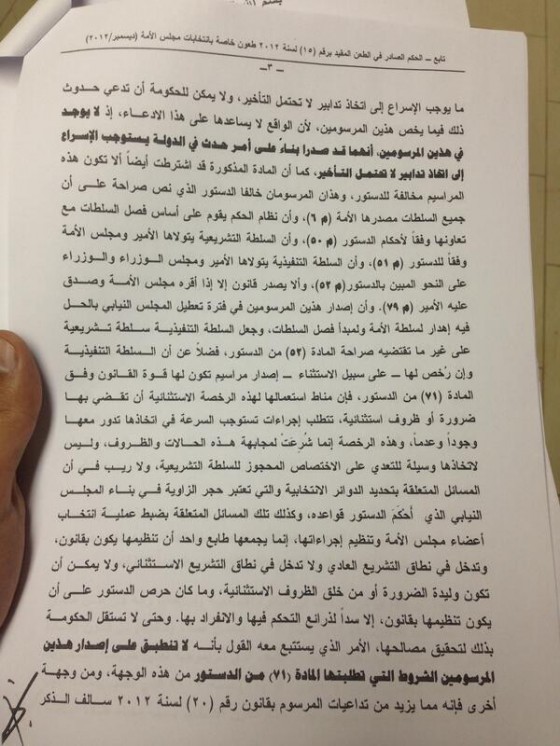 تابع – الحكم الصادر في الطعن المقيد برقم (١٥) لسنة ٢٠١٢ طعون خاصة بانتخابات مجلس الأمة (ديسمبر/٢٠١٢)
-٣-
ما يوجب الإسراع إلى اتخاذ تدابير لا تحتمل التأخير، ولا يمكن للحكومة أن تدعي حدوث
ذلك فيما يخص هذين المرسومين، لأن الواقع لا يساعدها على هذا الادعاء، إذ لا يوجد
في هذين المرسومين، أنهما قد صدرا بناءً على أمر حدث في الدولة يستوجب الإسراع
إلى اتخاذ تدابير لا تحتمل التأخير، كما أن المادة المذكورة قد اشترطت أيضاً ألا تكون هذه
المراسيم مخالفة للدستور، وهذان المرسومان خالفا الدستور الذي نص صراحة على أن
جميع السلطات مصدرها الأمة (م ٦)، وأن نظام الحكم يقوم على أساس فصل السلطات مع
تعاونها وفقاً لأحكام الدستور (م ٥٠)، وأن السلطة التشريعية يتولاها الأمير ومجلس الأمة
وفقاً للدستور (م ٥١)، وأن السلطة التنفيذية يتولاها الأمير ومجلس الوزراء والوزراء
على النحو المبين بالدستور(م ٥٢)، وألا يصدر قانون إلا إذا أقره مجلس الأمة وصدق
عليه الأمير (م ٧٩). وأن إصدار هذين المرسومين في فترة تعطيل المجلس النيابي بالحل
فيه إهدار لسلطة الأمة ولمبدأ فصل السلطات، وجعل السلطة التنفيذية سلطة تشريعية
على غير ما تقتضيه صراحة المادة (٥٢) من الدستور، فضلاً عن أن السلطة التنفيذية
وإن رُخص لها – على سبيل الاستثناء – إصدار مراسيم تكون لها قوة القانون وفق
المادة (٧١) من الدستور، فإن مناط استعمالها لهذه الرخصة الاستثنائية أن تقضي بها
ضرورة أو ظروف استثنائية، تتطلب إجراءات تستوجب السرعة في اتخاذها تدور معها
وجوداً وعدماً، وهذه الرخصة إنما شُرِعَتْ لمجابهة هذه الحالات والظروف، وليس
لاتخاذها وسيلة للتعدي على الاختصاص المحجوز للسلطة التشريعية، ولا ريب في أن
المسائل المتعلقة بتحديد الدوائر الانتخابية والتي تعتبر حجر الزاوية في بناء المجلس
النيابي الذي أَحكَمَ الدستور قواعده، وكذلك تلك المسائل المتعلقة بضبط عملية انتخاب
أعضاء مجلس الأمة وتنظيم إجراءاتها، إنما يجمعها طابع واحد أن تنظيمها يكون بقانون،
وتدخل في نطاق التشريع العادي ولا تدخل في نطاق التشريع الاستثنائي، ولا يمكن أن
تكون وليدة الضرورة أو من خلق الظروف الاستثنائية، وما كان حرص الدستور على أن
يكون تنظيمها بقانون، إلا سداً لذرائع التحكم فيها والانفراد بها. وحتى لا تستقل الحكومة
بذلك لتحقيق مصالحها، الأمر الذي يستتبع معه القول بأنه لا تنطبق على إصدار هذين
المرسومين الشروط التي تطلبتها المادة (٧١) من الدستور من هذه الوجهة، ومن وجهة
أخرى فإنه مما يزيد من تداعيات المرسوم بقانون رقم (٢٠) لسنة ٢٠١٢ سالف الذكر